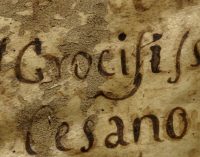 Crocifiss
Cesano